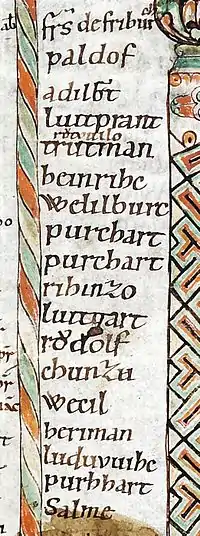 frs de friburc
paldof
adilbt
luttprant
rŏtwilo
trutman
heinrihc
welilburc
purchart
purchart
rihinzo
luttgart
rŏdolf
chunzu
wecil
heriman
luduvuihc
purhhart
Salme